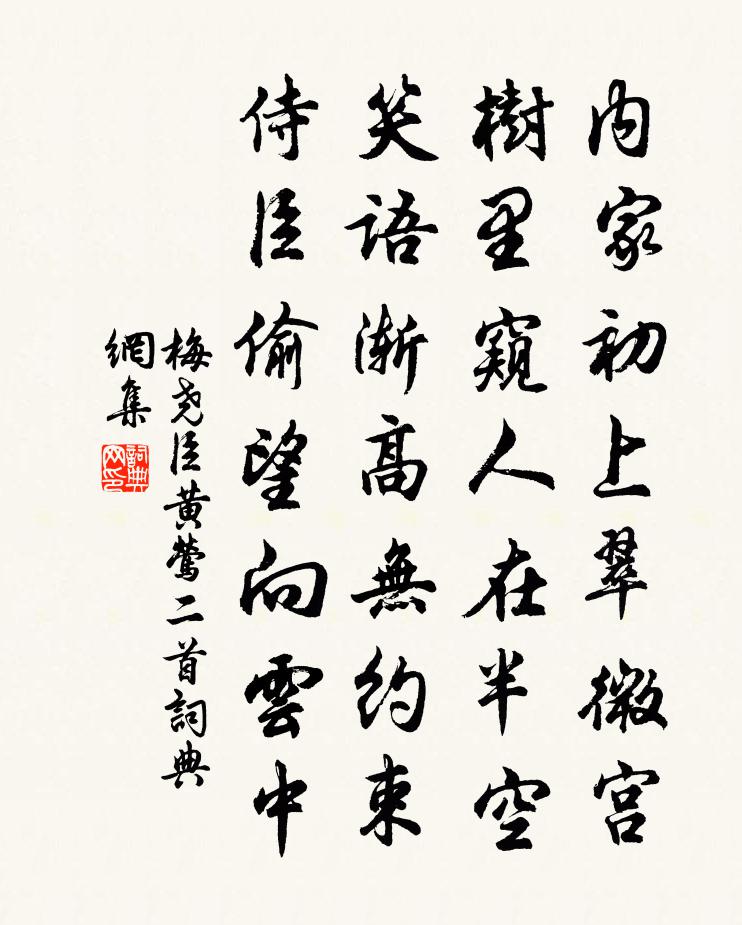 内家初上翠微宮
樹里窺人在半空
笑語漸高無約束
侍臣偷望向雲中
梅尧臣黄莺二首詞典
網集
詞典
网印